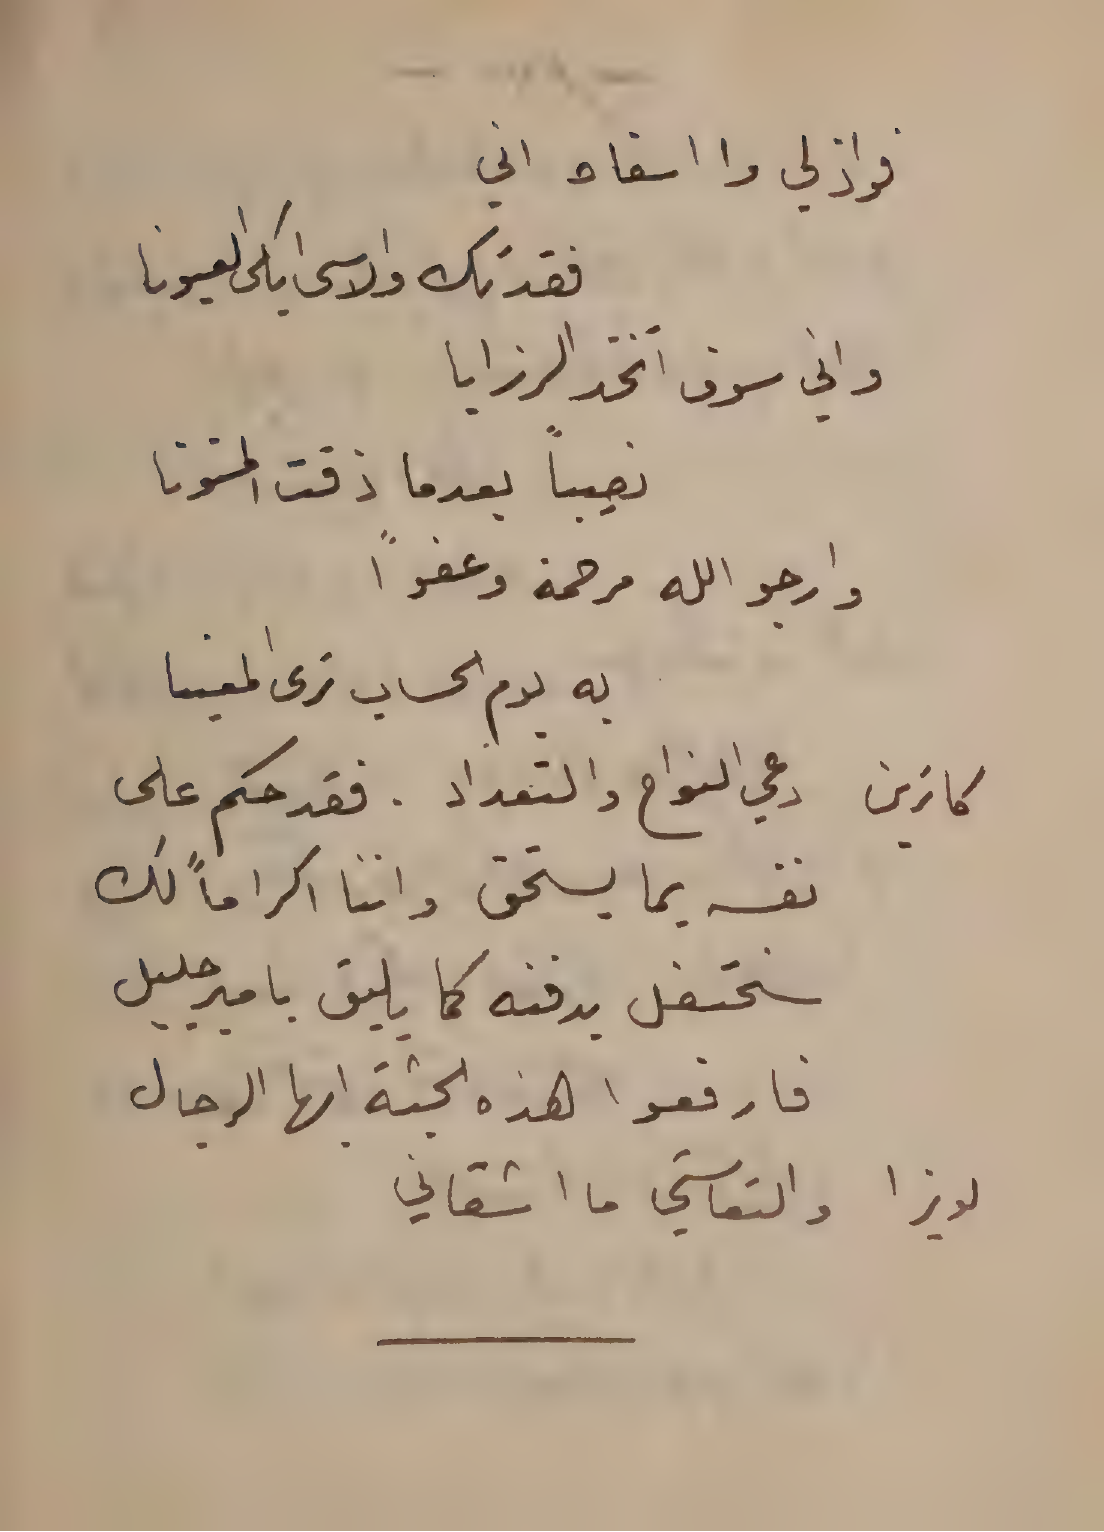 فواذلي وا اسفاه اني
فقدتك والاسى ابكى العيونا
واني سوف أتخد الرزايا
نصيباً بعدما ذقت المنونا
وارجو الله مرحمة وعفواً
به يوم الحساب ترى المعينا
كاترين دعي النواح والتعداد . فقد حكم على
نفسه بما يستحق واننا اكراماً لك
سنحتفل بدفنه كما يليق بامير جليل
فارفعوا هذه الجثة ايها الرجال
لويزا والتعاستي ما اشقاني